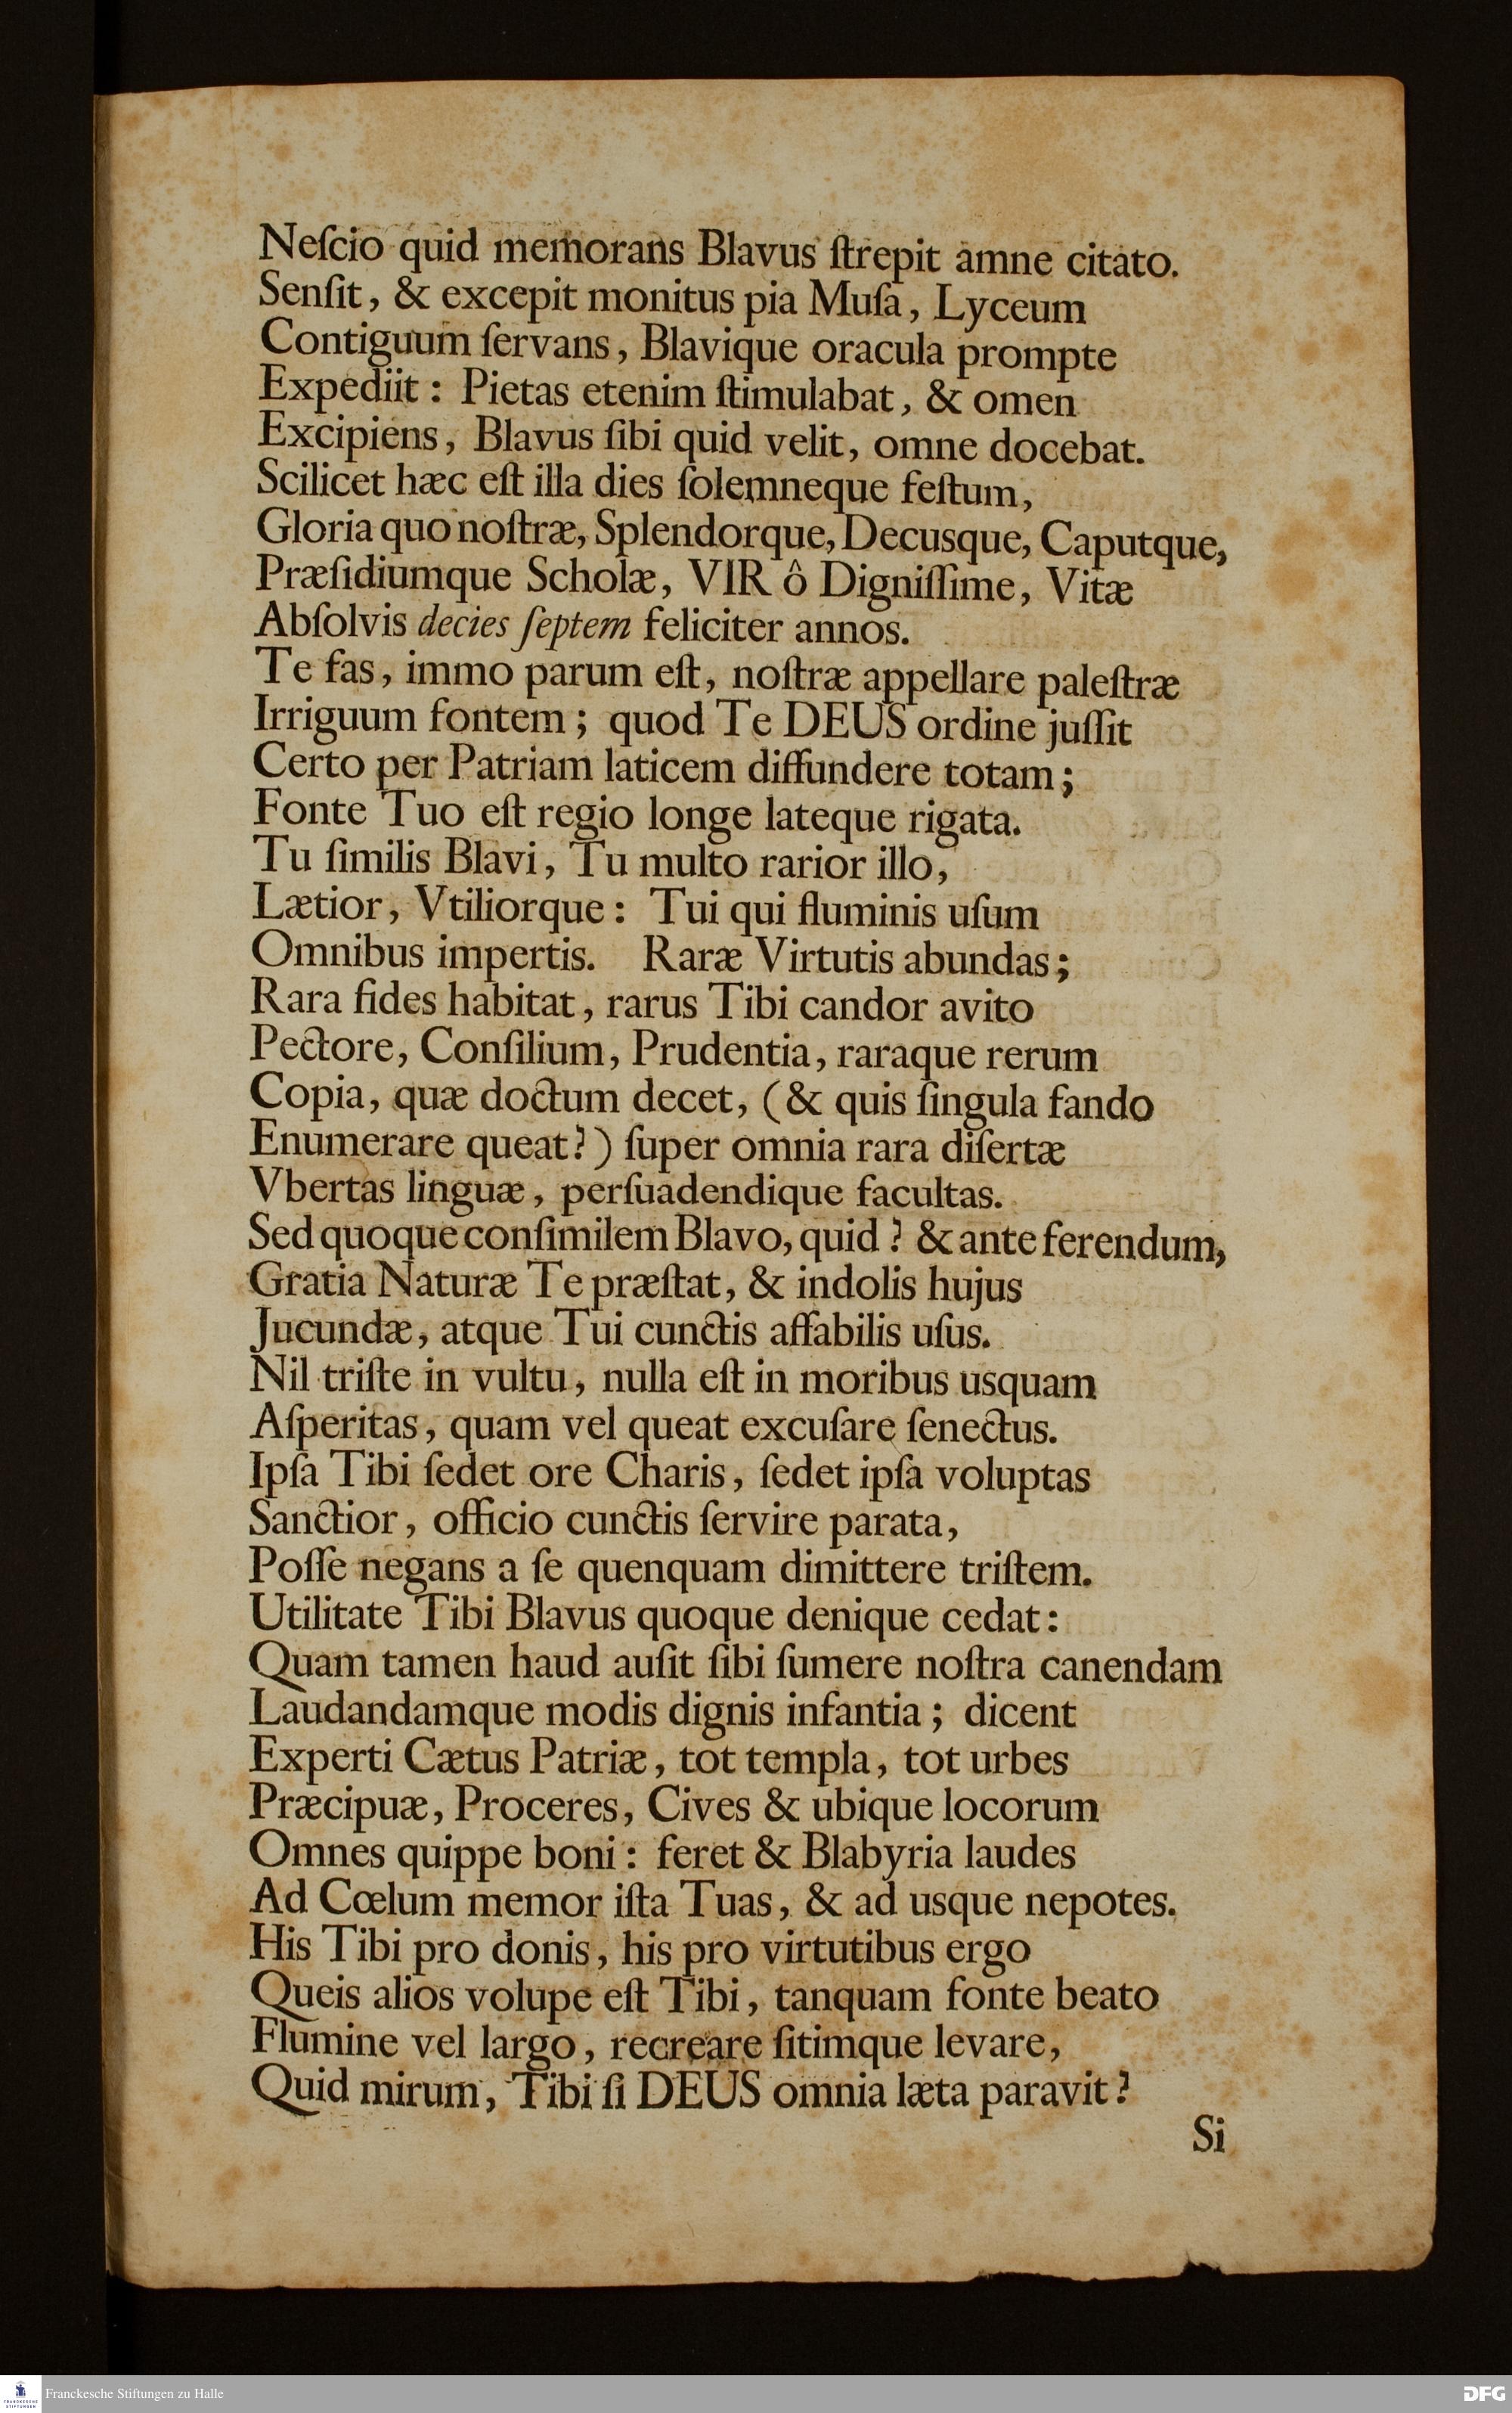 Neſcio quid memorans Blavus ſtrepit amne citato.
Senſit, & excepit monitus pia Muſa, Lyceum
Contiguum ſervans, Blavique oracula prompte
Expediit: Pietas etenim ſtimulabat, & omen
Excipiens, Blavus ſibi quid velit, omne docebat.
Scilicet hæc eſt illa dies ſolemneque feſtum,
Gloria quo noſtræ, Splendorque, Decusque, Caputque,
Præſidiumque Scholæ, VIR ô Digniſſime, Vitæ
Abſolvis decies ſeptem feliciter annos.
Te fas, immo parum eſt, noſtræ appellare paleſtræ
Irriguum fontem; quod Te DEUS ordine juſſit
Certo per Patriam laticem diffundere totam;
Fonte Tuo eſt regio longe lateque rigata.
Tu ſimilis Blavi, Tu multo rarior illo,
Lætior, Vtiliorque: Tui qui fluminis uſum
Omnibus impertis. Raræ Virtutis abundas;
Rara fides habitat, rarus Tibi candor avito
Pectore, Conſilium, Prudentia, raraque rerum
Copia, quæ doctum decet, (& quis ſingula fando
Enumerare queat?) ſuper omnia rara diſertæ
Vbertas linguæ, perſuadendique facultas.
Sed quoque conſimilem Blavo, quid? & ante ferendum,
Gratia Naturæ Te præſtat, & indolis hujus
Jucundæ, atque Tui cunctis affabilis uſus.
Nil triſte in vultu, nulla eſt in moribus usquam
Aſperitas, quam vel queat excuſare ſenectus.
Ipſa Tibi ſedet ore Charis, ſedet ipſa voluptas
Sanctior, officio cunctis ſervire parata,
Poſſe negans a ſe quenquam dimittere triſtem.
Utilitate Tibi Blavus quoque denique cedat:
Quam tamen haud auſit ſibi ſumere noſtra canendam
Laudandamque modis dignis infantia; dicent
Experti Cætus Patriæ, tot templa, tot urbes
Præcipuæ, Proceres, Cives & ubique locorum
Omnes quippe boni: feret & Blabyria laudes
Ad Cœlum memor iſta Tuas, & ad usque nepotes.
His Tibi pro donis, his pro virtutibus ergo
Queis alios volupe eſt Tibi, tanquam fonte beato
Flumine vel largo, recreare ſitimque levare,
Quid mirum, Tibi ſi DEUS omnia læta paravit?
Si
FRANCKESCHE
STIFTUNGEN
Franckesche Stiftungen zu Halle
DFG